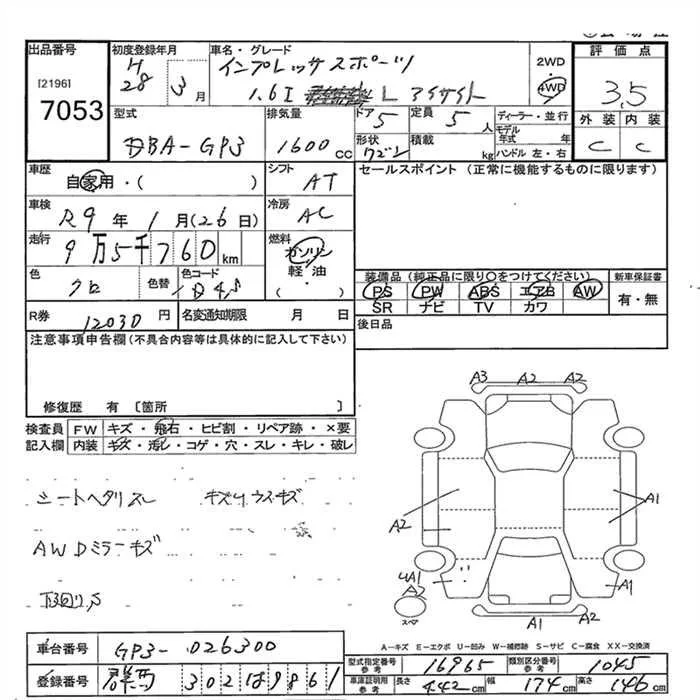 出品番号
[2196]
7053
初度登録年月
H28 3月
車名・グレード
インプレッサスポーツ
1.6I L アイサイト
2WD
4WD
評価点
3.5
外装 内装
C C
型式
DBA-GP3
排気量
1600cc
ドア 5
定員 5人
形状 ワゴン
積載 kg
ディーラー・並行
モデル年式 年
ハンドル 左・右
車歴
自家用・( )
シフト
AT
セールスポイント (正常に機能するものに限ります)
車検
R9年1月(26日)
冷房
AC
走行
9万5千760km
燃料
ガソリン
軽・油
( )
色
クロ
色替
色コード
D4S
装備品 (純正品に限り○をつけてください)
PS PW ABS エアB AW
SR ナビ TV カワ
新車保証書
有・無
R券 12030円
名変通知期限 月 日
後日品
注意事項申告欄(不具合内容等は具体的に記入して下さい)
修復歴 有 [箇所 ]
検査員 記入欄
FW キズ・飛石・ヒビ割・リペア跡・×要
内装 キズ・汚レ・コゲ・穴・スレ・キレ・破レ
シートヘタリスレ キズリウスキズ
AWDミラーキズ
下回リS
A3 A2 A2
A2
A1
4A1
A2
A1
A1 A2
スペア
A-キズ E-エクボ U-凹み W-補修跡 S-サビ C-腐食 XX-交換済
車台番号 GP3-026300
登録番号 群馬 302 は 9861
型式指定番号 参考 16965
類別区分番号 参考 1045
車庫証明用 参考 長さ 442cm 幅 174cm 高さ 146cm